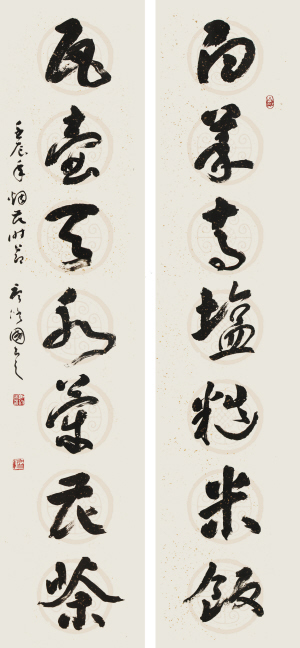 白菜青塩糙米飯
瓦壺天水菊花茶
壬辰年烟花時節